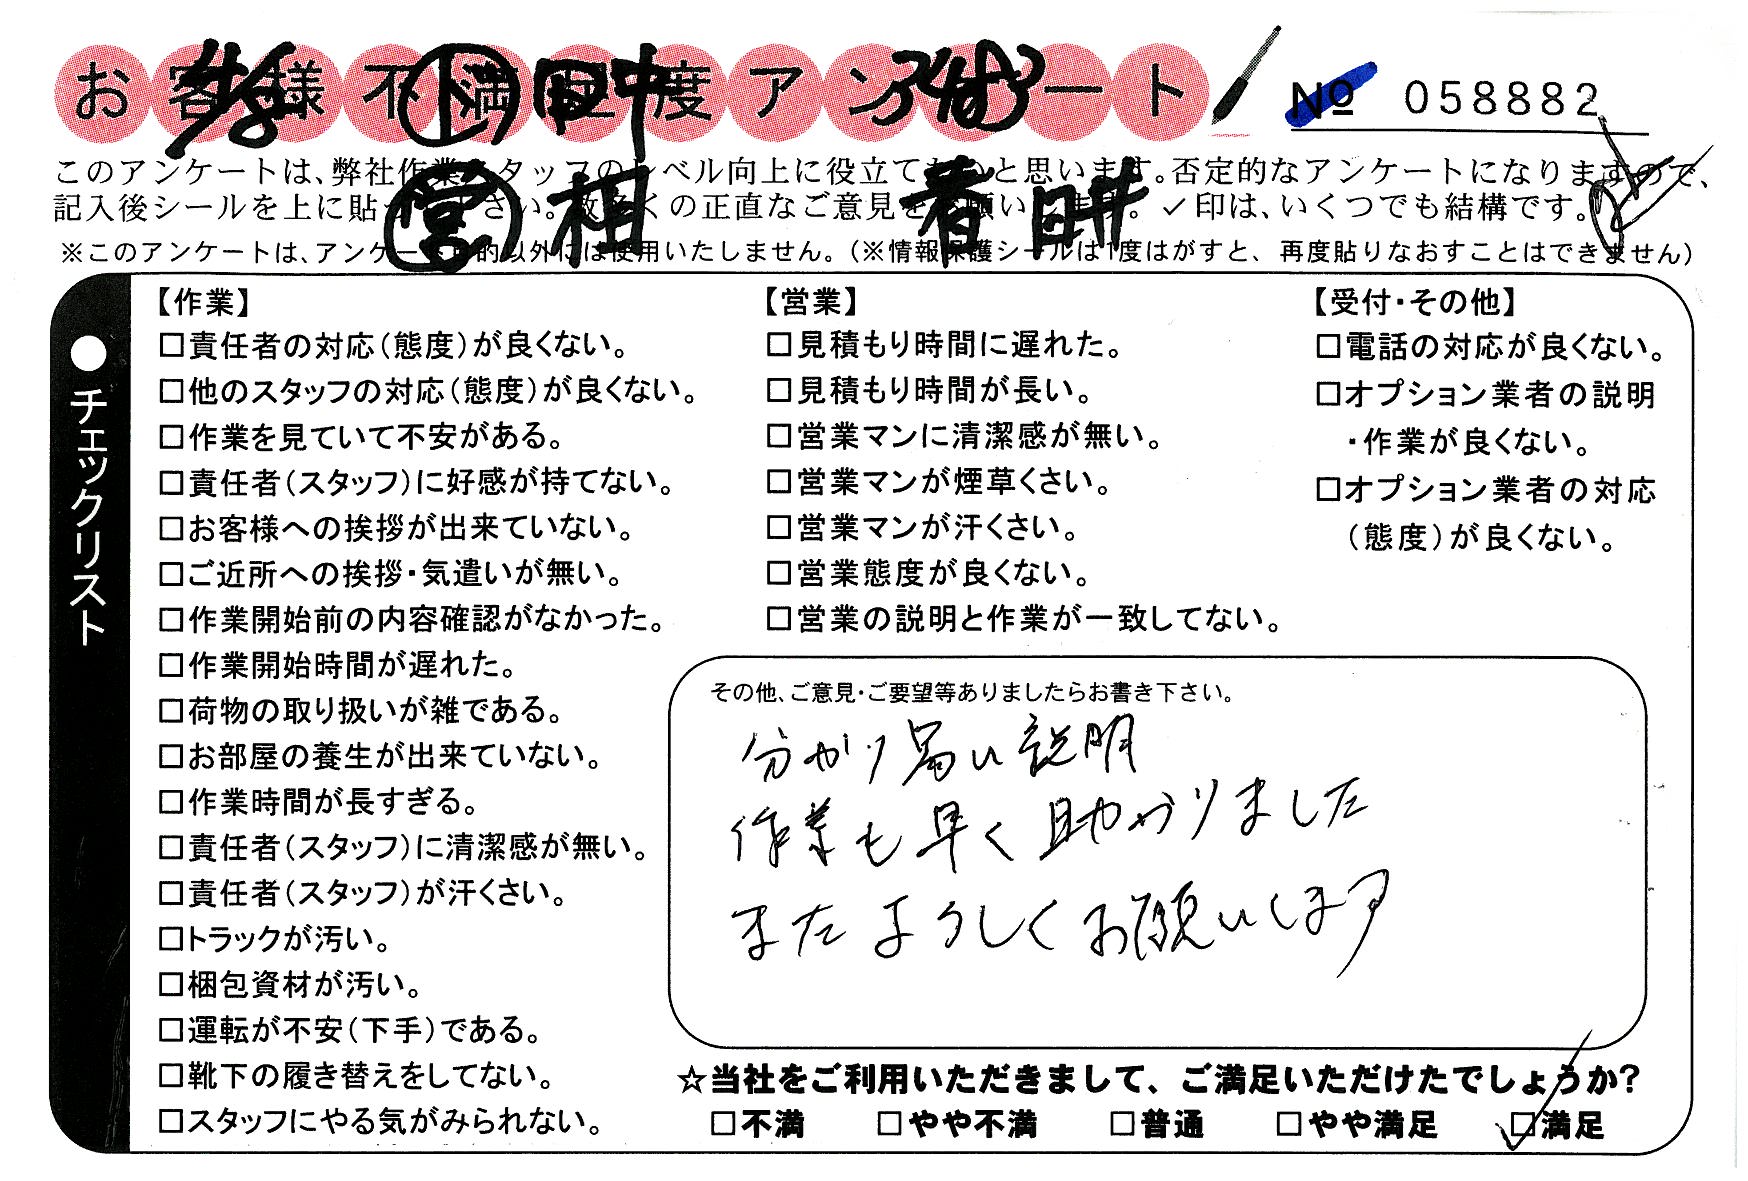 お客様不満足度アンケート
№ 058882
このアンケートは、弊社作業スタッフのレベル向上に役立てたいと思います。否定的なアンケートになりますので、
記入後シールを上に貼って下さい。数多くの正直なご意見をお願いします。✓印は、いくつでも結構です。
※このアンケートは、アンケート目的以外には使用いたしません。（※情報保護シールは1度はがすと、再度貼りなおすことはできません）
田中
営 相
●チェックリスト
【作業】
□責任者の対応（態度）が良くない。
□他のスタッフの対応（態度）が良くない。
□作業を見ていて不安がある。
□責任者（スタッフ）に好感が持てない。
□お客様への挨拶が出来ていない。
□ご近所への挨拶・気遣いが無い。
□作業開始前の内容確認がなかった。
□作業開始時間が遅れた。
□荷物の取り扱いが雑である。
□お部屋の養生が出来ていない。
□作業時間が長すぎる。
□責任者（スタッフ）に清潔感が無い。
□責任者（スタッフ）が汗くさい。
□トラックが汚い。
□梱包資材が汚い。
□運転が不安（下手）である。
□靴下の履き替えをしてない。
□スタッフにやる気がみられない。
【営業】
□見積もり時間に遅れた。
□見積もり時間が長い。
□営業マンに清潔感が無い。
□営業マンが煙草くさい。
□営業マンが汗くさい。
□営業態度が良くない。
□営業の説明と作業が一致してない。
【受付・その他】
□電話の対応が良くない。
□オプション業者の説明
・作業が良くない。
□オプション業者の対応
（態度）が良くない。
その他、ご意見・ご要望等ありましたらお書き下さい。
分かり易い説明
作業も早く助かりました
またよろしくお願いします
☆当社をご利用いただきまして、ご満足いただけたでしょうか？
□不満 □やや不満 □普通 □やや満足 □満足